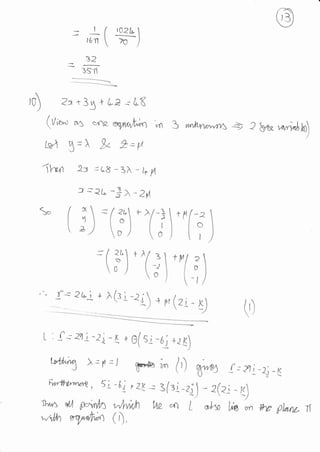 (13)
= 1/16π ( 1024/70 )
= 32/35π
10) 2x + 3y + 4z = 48
(View as one equation in 3 unknowns ⇒ 2 free variables)
Let y = λ & z = μ
Then 2x = 48 - 3λ - 4μ
x = 24 - 3/2 λ - 2μ
So (x y z) = (24 0 0) + λ(-3/2 1 0) + μ(-2 0 1)
= (24 0 0) + λ(3 -2 0) + μ(2 0 -1)
∴ r = 24i + λ(3i - 2j) + μ(2i - k) (1)
L : r = 29i - 2j - k + θ(5i - 6j + 2k)
Letting λ = μ = 1 in (1) gives r = 29i - 2j - k
Furthermore, 5i - 6j + 2k = 3(3i - 2j) - 2(2i - k)
Thus all points which lie on L also lie on the plane Π
with equation (1).